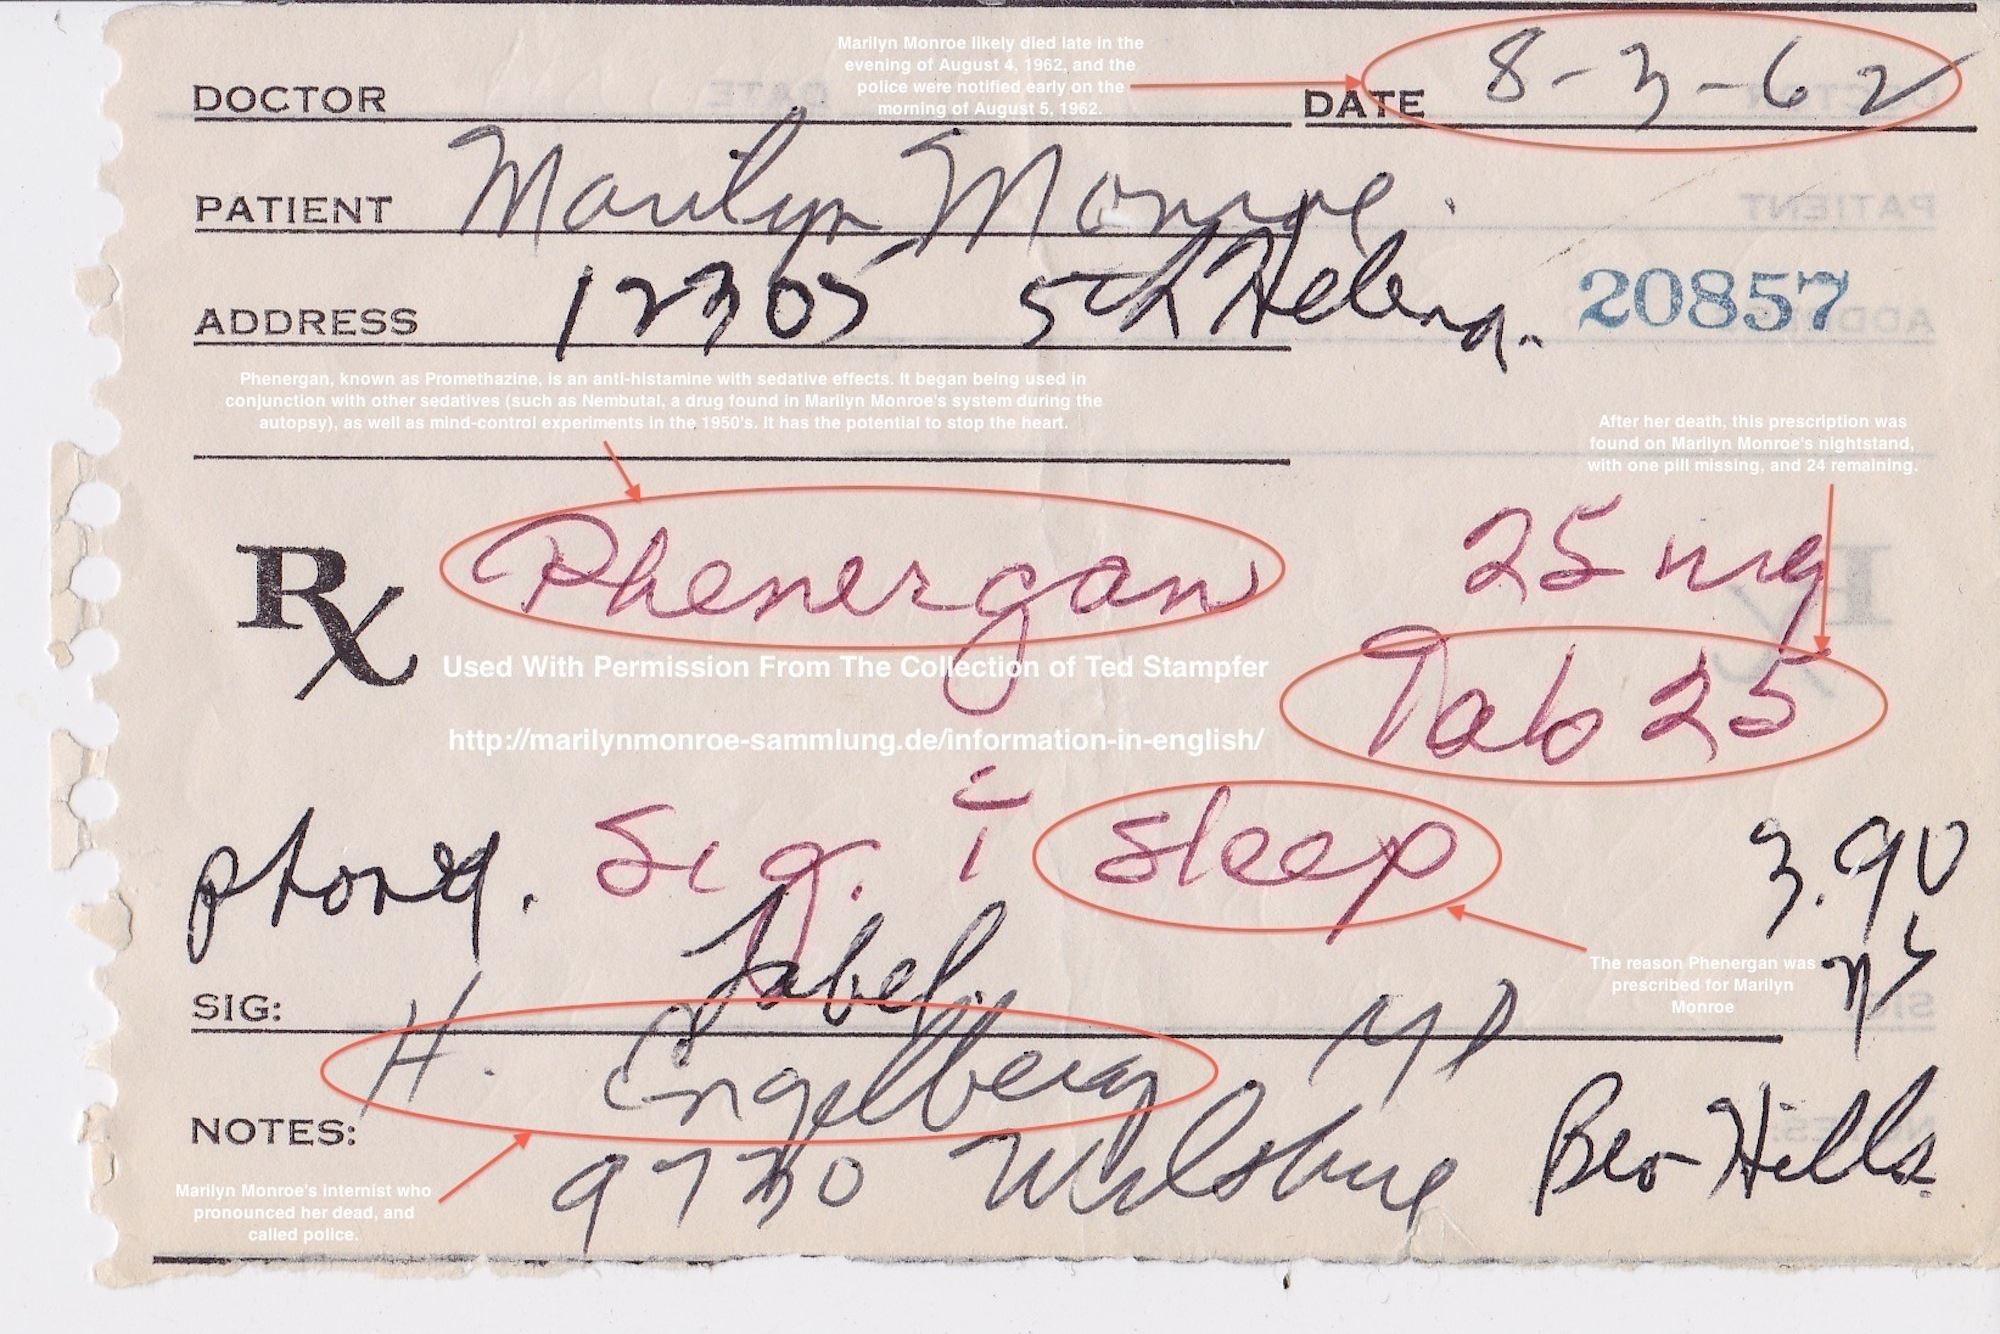 Marilyn Monroe likely died late in the
evening of August 4, 1962, and the
police were notified early on the
morning of August 5, 1962.
DOCTOR DATE 8-3-62
PATIENT Marilyn Monroe.
ADDRESS 12305 5th Helena. 20857
Phenergan, known as Promethazine, is an anti-histamine with sedative effects. It began being used in
conjunction with other sedatives (such as Nembutal, a drug found in Marilyn Monroe's system during the
autopsy), as well as mind-control experiments in the 1950's. It has the potential to stop the heart.
After her death, this prescription was
found on Marilyn Monroe's nightstand,
with one pill missing, and 24 remaining.
Rx Phenergan 25 mg
Used With Permission From The Collection of Ted Stampfer
Tab 25
http://marilynmonroe-sammlung.de/information-in-english/
phoned. Sig. i sleep 3.90
Label
The reason Phenergan was
prescribed for Marilyn
Monroe
SIG:
H. Engelberg MD
NOTES:
9730 Wilshire Bev Hills.
Marilyn Monroe's internist who
pronounced her dead, and
called police.